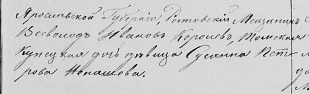 Ярославской Губерніи, Ростовскій Мещанинъ
Всеволодъ Ивановъ Королевъ, Томская
Купецкая дочь дѣвица Сусанна Пет-
рова Ненашева.